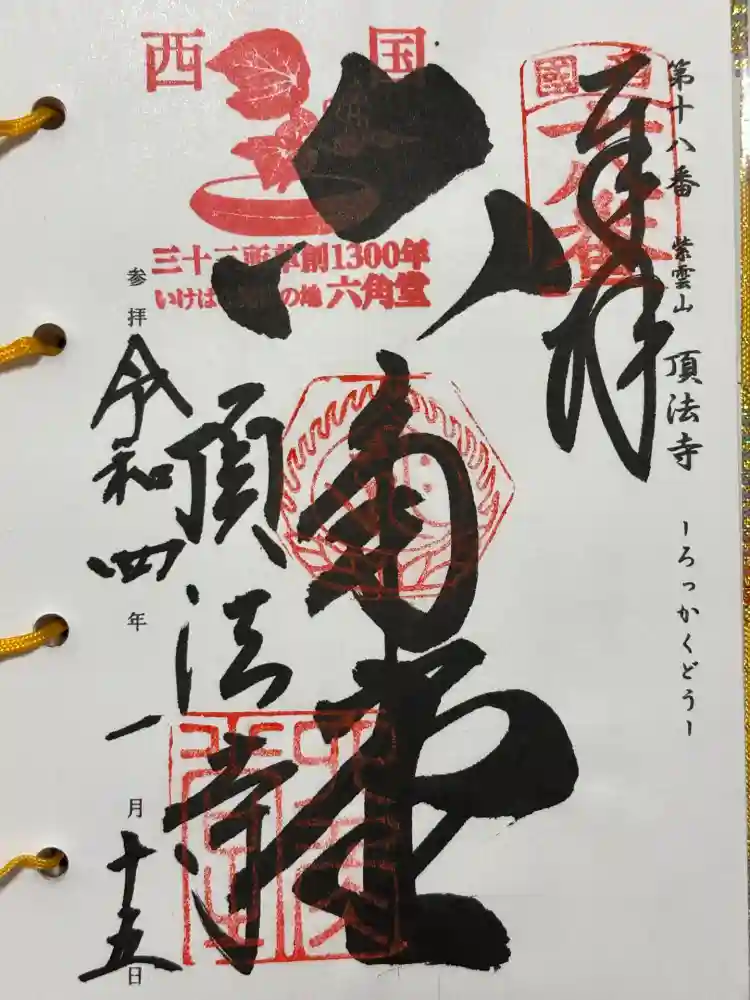 第十八番 紫雲山 頂法寺 ーろっかくどうー
奉拝
西国
十八番
西 国
三十三所草創1300年
いけばな発祥の地 六角堂
六角堂
頂法寺
参拝 令和四年一月十五日